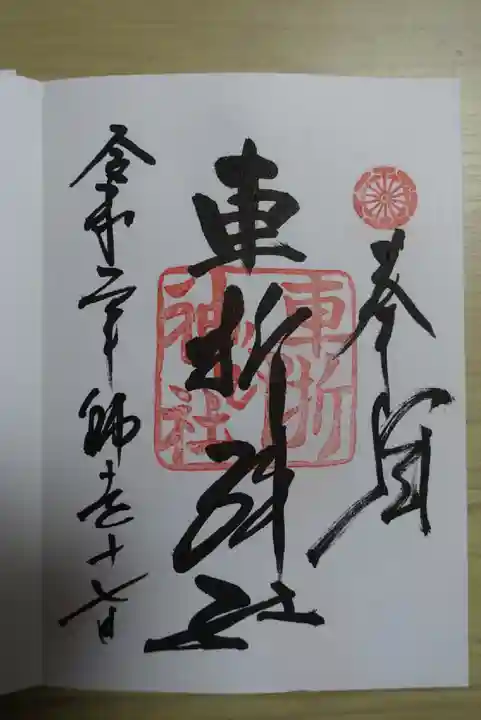 奉
車折神社
車折神社
令和二年師走十七日